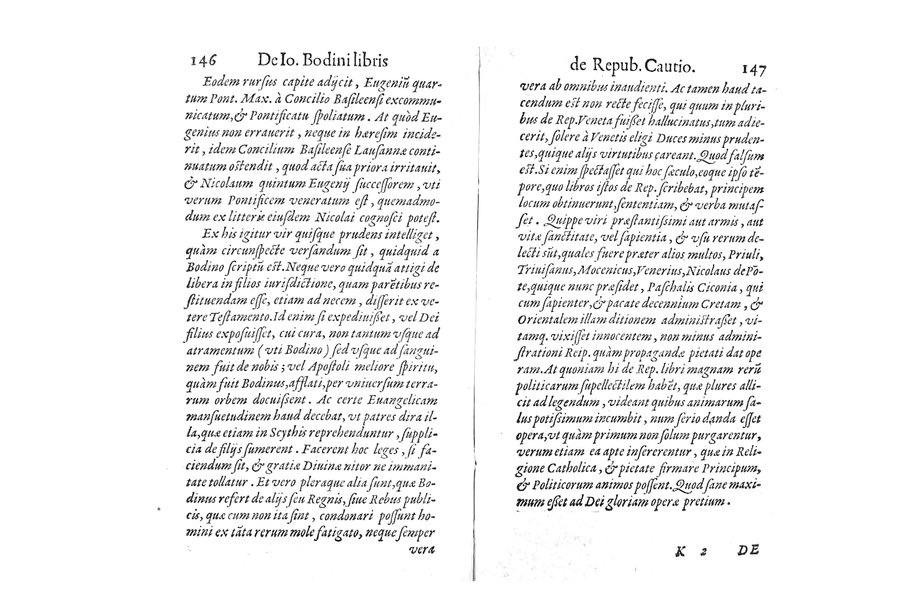 146 De Io. Bodini libris
Eodem rursus capite adijcit, Eugeniũ quar-
tum Pont. Max. à Concilio Basileensi excommu-
nicatum, & Pontificatu spoliatum. At quòd Eu-
genius non errauerit, neque in hæresim incide-
rit, idem Concilium Basileense Lausannæ conti-
nuatum ostendit, quod acta sua priora irritauit,
& Nicolaum quintum Eugenij successorem, vti
verum Pontificem veneratum est, quemadmo-
dum ex litteris eiusdem Nicolai cognosci potest.
Ex his igitur vir quisque prudens intelliget,
quàm circunspecte versandum sit, quidquid a
Bodino scriptũ est. Neque vero quidquã attigi de
libera in filios iurisdictione, quam parẽtibus re-
stituendam esse, etiam ad necem, disserit ex ve-
tere Testamento. Id enim si expediuisset, vel Dei
filius exposuisset, cui cura, non tantum vsque ad
atramentum (vti Bodino) sed vsque ad sangui-
nem fuit de nobis; vel Apostoli meliore spiritu,
quàm fuit Bodinus, afflati, per vniuersum terra-
rum orbem docuissent. Ac certe Euangelicam
mansuetudinem haud decebat, vt patres dira il-
la, quæ etiam in Scythis reprehenduntur, suppli-
cia de filijs sumerent. Facerent hoc leges, si fa-
ciendum sit, & gratiæ Diuinæ nitor ne immani-
tate tollatur. Et vero pleraque alia sunt, quæ Bo-
dinus refert de alijs seu Regnis, siue Rebus publi-
cis, quæ cum non ita sint, condonari possunt ho-
mini ex tãta rerum mole fatigato, neque semper
vera
de Repub. Cautio. 147
vera ab omnibus inaudienti. Ac tamen haud ta-
cendum est non recte fecisse, qui quum in pluri-
bus de Rep. Veneta fuisset hallucinatus, tum adie-
cerit, solere à Venetis eligi Duces minus pruden-
tes, quique alijs virtutibus careant. Quod falsum
est. Si enim spectasset qui hoc sæculo, eoque ipso tẽ-
pore, quo libros istos de Rep. scribebat, principem
locum obtinuerunt, sententiam, & verba mutas-
set. Quippe viri præstantissimi aut armis, aut
vitæ sanctitate, vel sapientia, & vsu rerum de-
lecti sũt, quales fuere præter alios multos, Priuli,
Triuisanus, Mocenicus, Venerius, Nicolaus de Põ-
te, quique nunc præsidet, Paschalis Ciconia, qui
cum sapienter, & pacate decennium Cretam, &
Orientalem illam ditionem administrasset, vi-
tamq. vixisset innocentem, non minus admini-
strationi Reip. quàm propagandæ pietati dat ope
ram. At quoniam hi de Rep. libri magnam rerũ
politicarum supellectilem habẽt, quæ plures alli-
cit ad legendum, videant quibus animarum sa-
lus potissimum incumbit, num serio danda esset
opera, vt quàm primum non solum purgarentur,
verum etiam ea apte insererentur, quæ in Reli-
gione Catholica, & pietate firmare Principum,
& Politicorum animos possent. Quod sane maxi-
mum esset ad Dei gloriam operæ pretium.
K 2 DE